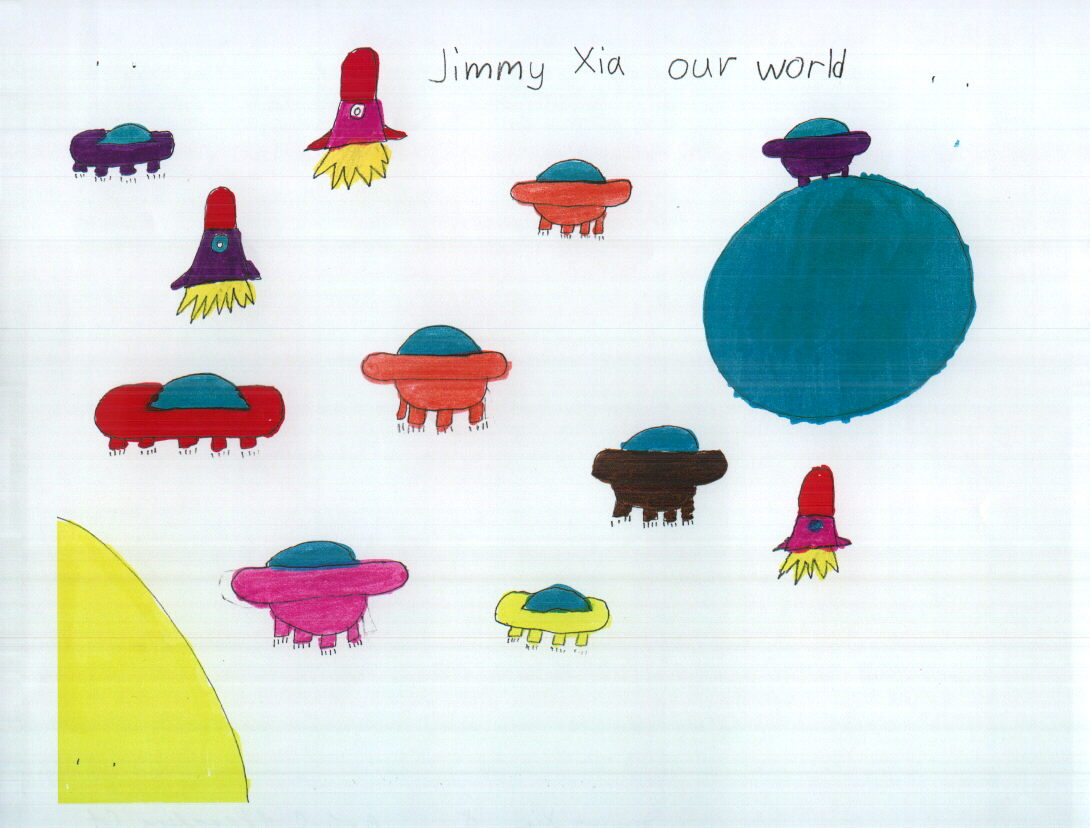 Jimmy Xia our world